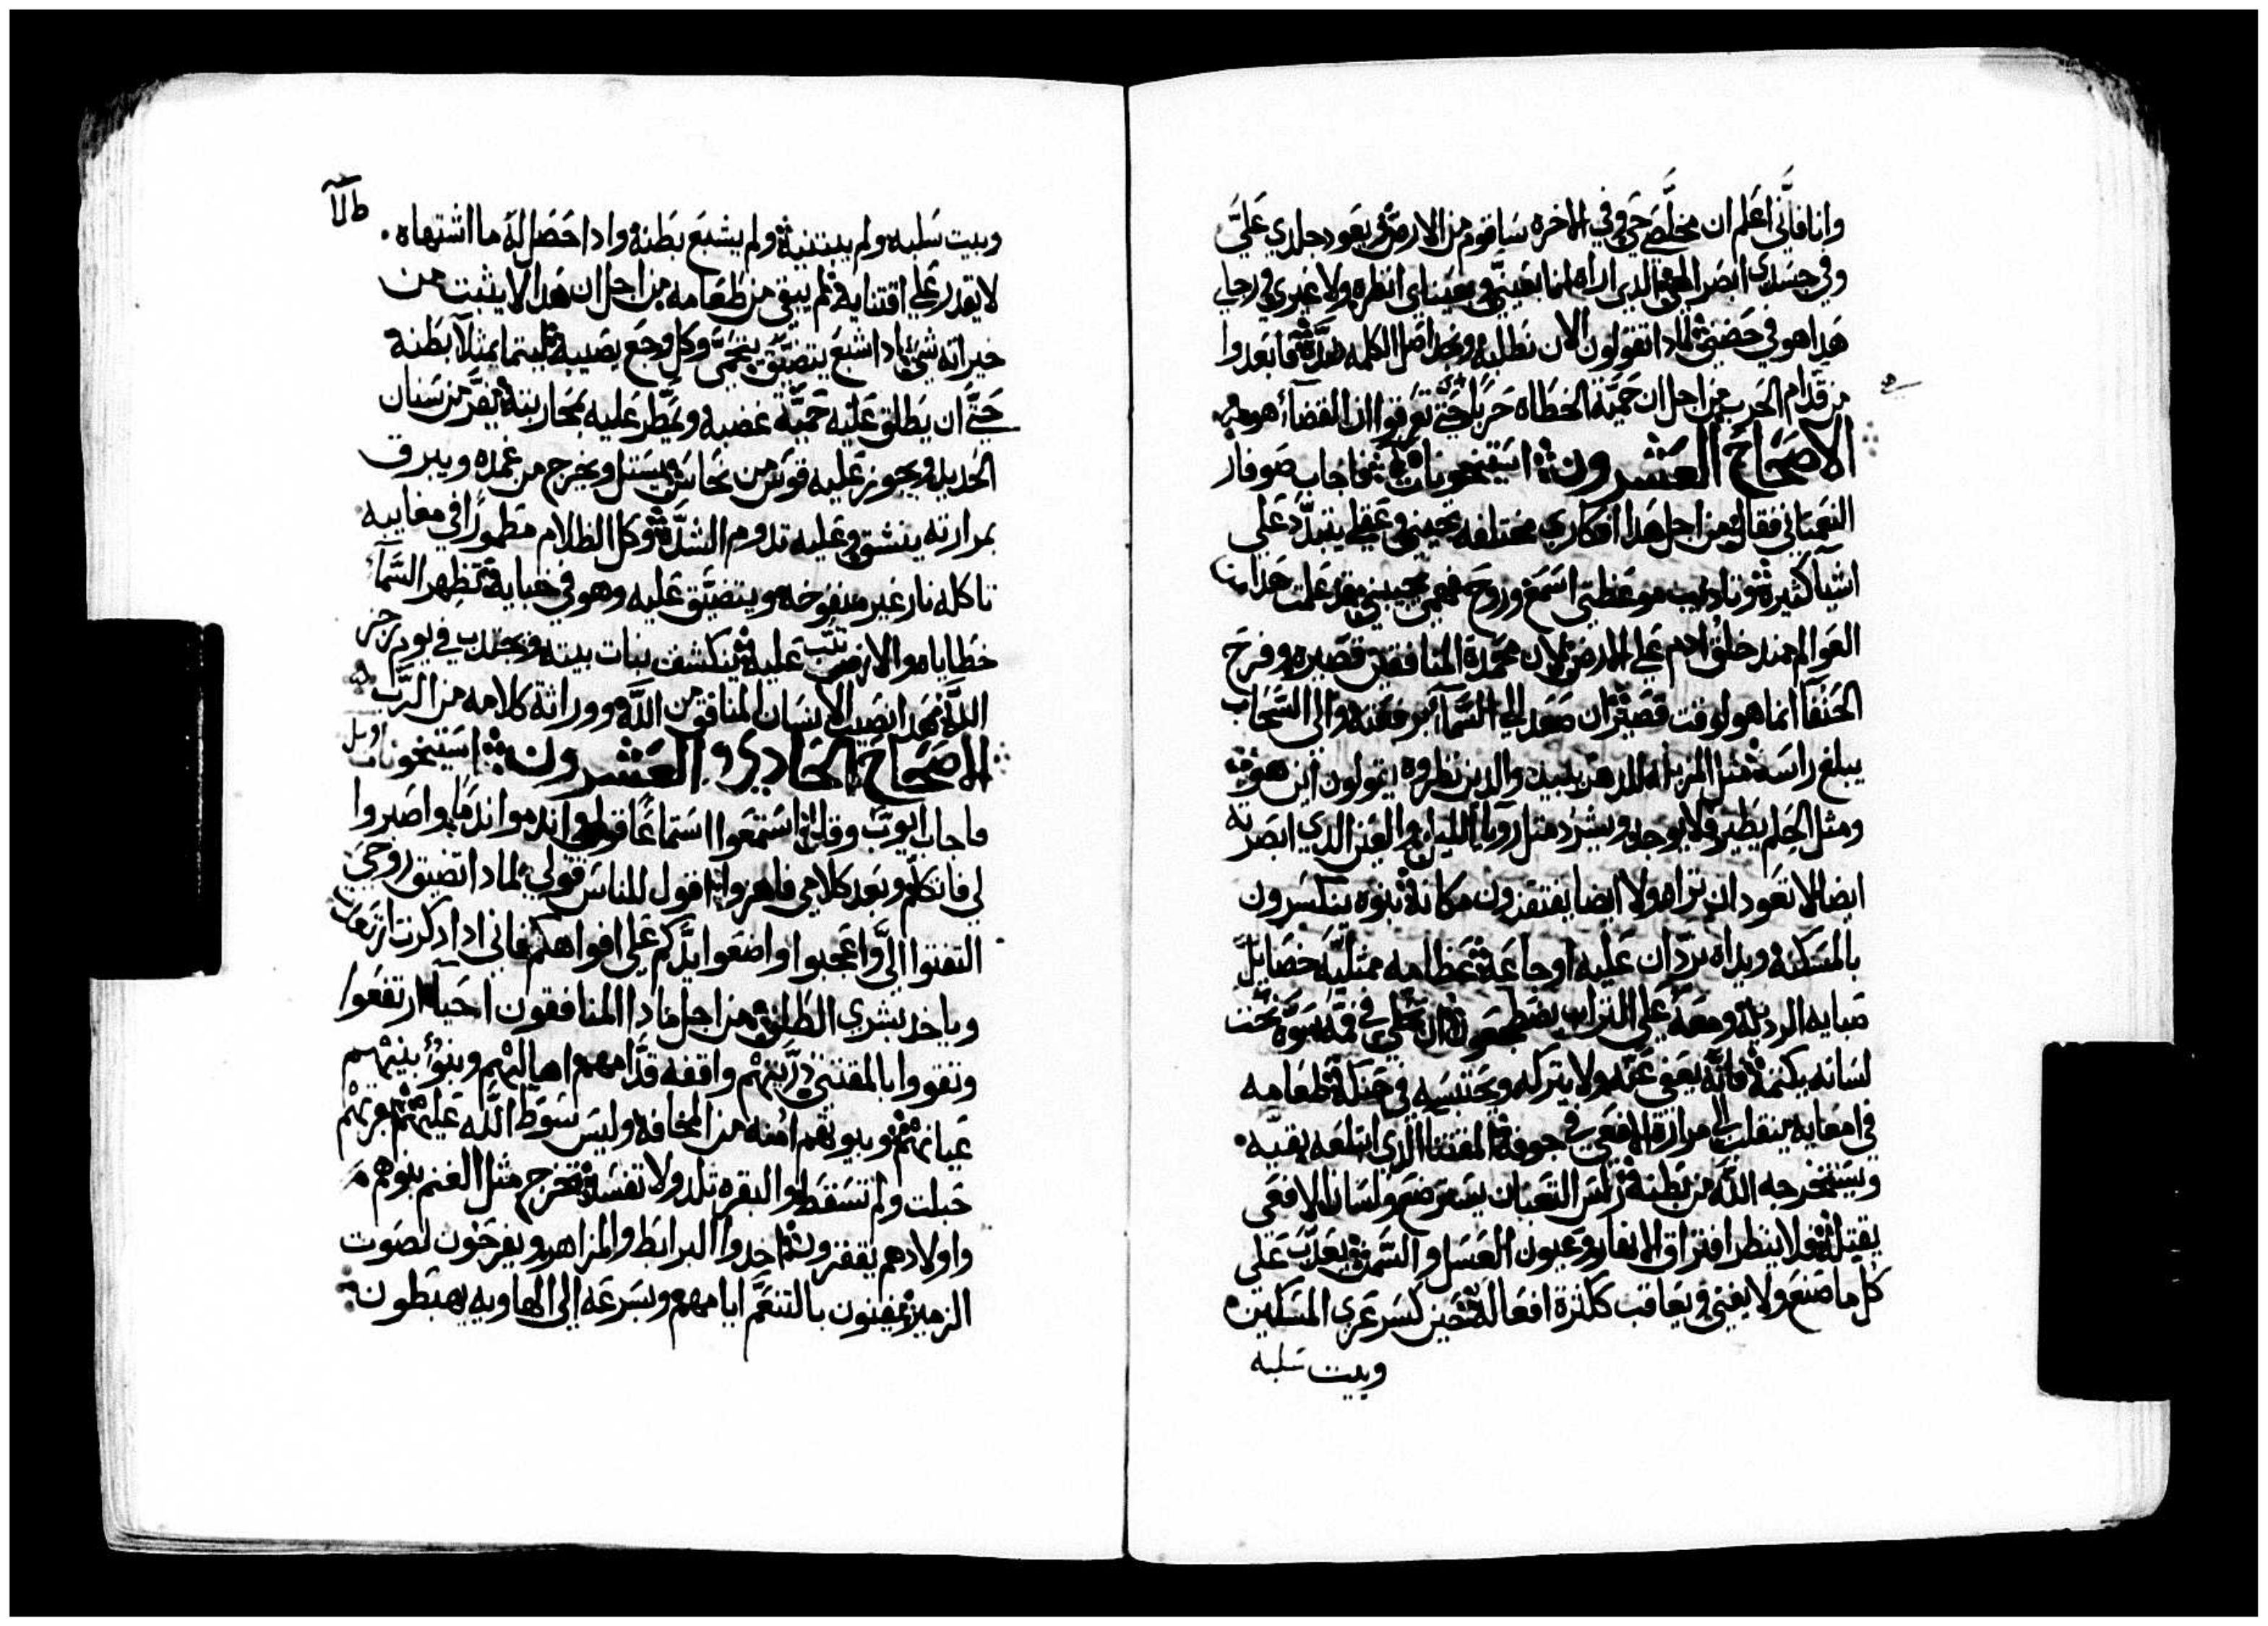 وانا فاني اعلم ان مخلصي حي وفي الاخره ساقوم من الارض ويعود جلدي علي
وفي جسدي ابصر الهي الدي اراه انا بعيني وبعيناي انظره ولا غيري في رجاي
هدا هو في حضني لمادا تقولون الان نطلبه ونجد اصل الكلمه ضده فابعدوا
من قدام الحرب من اجل ان حمية الخطاه حربا حتي تعرفوا ان القضا هو
الاصحاح العشرون استيخونات فاجاب صوفار
النعماني فقال من اجل هدا افكاري مختلفه تجيبني وعقلي يتبدد علي
اشيا كثيره وتاديب موعظتي اسمع وروح فهمي تجيبني قد علمت هدا من
العوالم مند خلق ادم علي الارض لان محمدة المنافقين قصيره وفرح
الحنفا انما هو لوقت قصير ان صعد الي السما برفعته والي السحاب
يبلغ راسه مثل المزبله للدهر يبيد والدين نظروه يقولون اين هو
ومثل الحلم يطير ولا يوجد ويشرد مثل رويا الليل والعين الدي ابصرته
ايضا لا تعود ان تراه ولا ايضا يفتقدون مكانه بنوه ينكسرون
بالمسكنه ويداه تردان عليه اوجاعه عظامه ممتليه خصايل
صبايه الرديله ومعه علي التراب يضطجعون ان تحلي في فمه سوه تحت
لسانه يكتمه فانه يعفي عنه ولا يتركه ويحتبسه في حنكه طعامه
في امعايه ينقلب الي مرارة الافعي في جوفه المقتنا الدي ابتلعه يقيه
ويستخرجه الله من بطنه راس الثعبان يسترضع ولسان الافعي
يقتله فلا ينظر افتراق الانهار وعيون العسل والسمن يعدب علي
كل ما صنع ولا يفني ويعاقب ككثرة افعاله حين كسر عري المسكين
وبيت سلبه
وبيت سلبه ولم يبتنيه ولم يشبع بطنه وادا حصل له ما اشتهاه
لا يقدر علي اقتنايه فلم يبق من طعامه من اجل ان هدا لا يثبت من
خيراته شي ادا شبع يتضيق يتحمي وكل وجع يصيبه ليتما يمتلا بطنه
حتي ان يطلق عليه حمية غضبه ويمطر عليه بمحاربته يفر من سنان
الحديد ويجوز عليه قوس من نحاس يستل ويخرج من غمده ويبرق
بمرارته ينشق وعليه تدوم الشده وكل الظلام مطمورا في معايبه
تاكله نار غير منفوخه ويتضيق عليه وهو في خبايه تظهر السما
خطاياه والارض تثب عليه ينكشف بنات بيته ويجتدب في يوم رجز
الله هدا نصيب الانسان المنافق من الله ووراثة كلامه من الرب
الاصحاح الحادي و العشرون استيخونات
فاجاب ايوب وقال استمعوا استماعا قولي واندموا ندما واصبروا
لي فاتكلم وبعد كلامي فاهزوا اقول للناس قولي لمادا تضيق روحي
التفتوا الي واعجبوا واضعوا يدكم علي افواهكم فاني ادا دكرت ارتعد
وياخد بشري الطلق من اجل مادا المنافقون احيا ارتفعوا
وتقووا بالمقتني دريتهم واقفه قدامهم اهاليهم وبنو بنيهم
عيانهم وبيوتهم امنه من المخافه وليس سوط الله عليهم بقرتهم
حبلت ولم تسقط والبقره تلد ولا تفسد تخرج مثل الغنم بنوهم
واولادهم يقفزون اخدوا البرابط والمزاهر ويفرحون لصوت
الزمير يفنون بالتنعم ايامهم وبسرعه الي الهاويه يهبطون